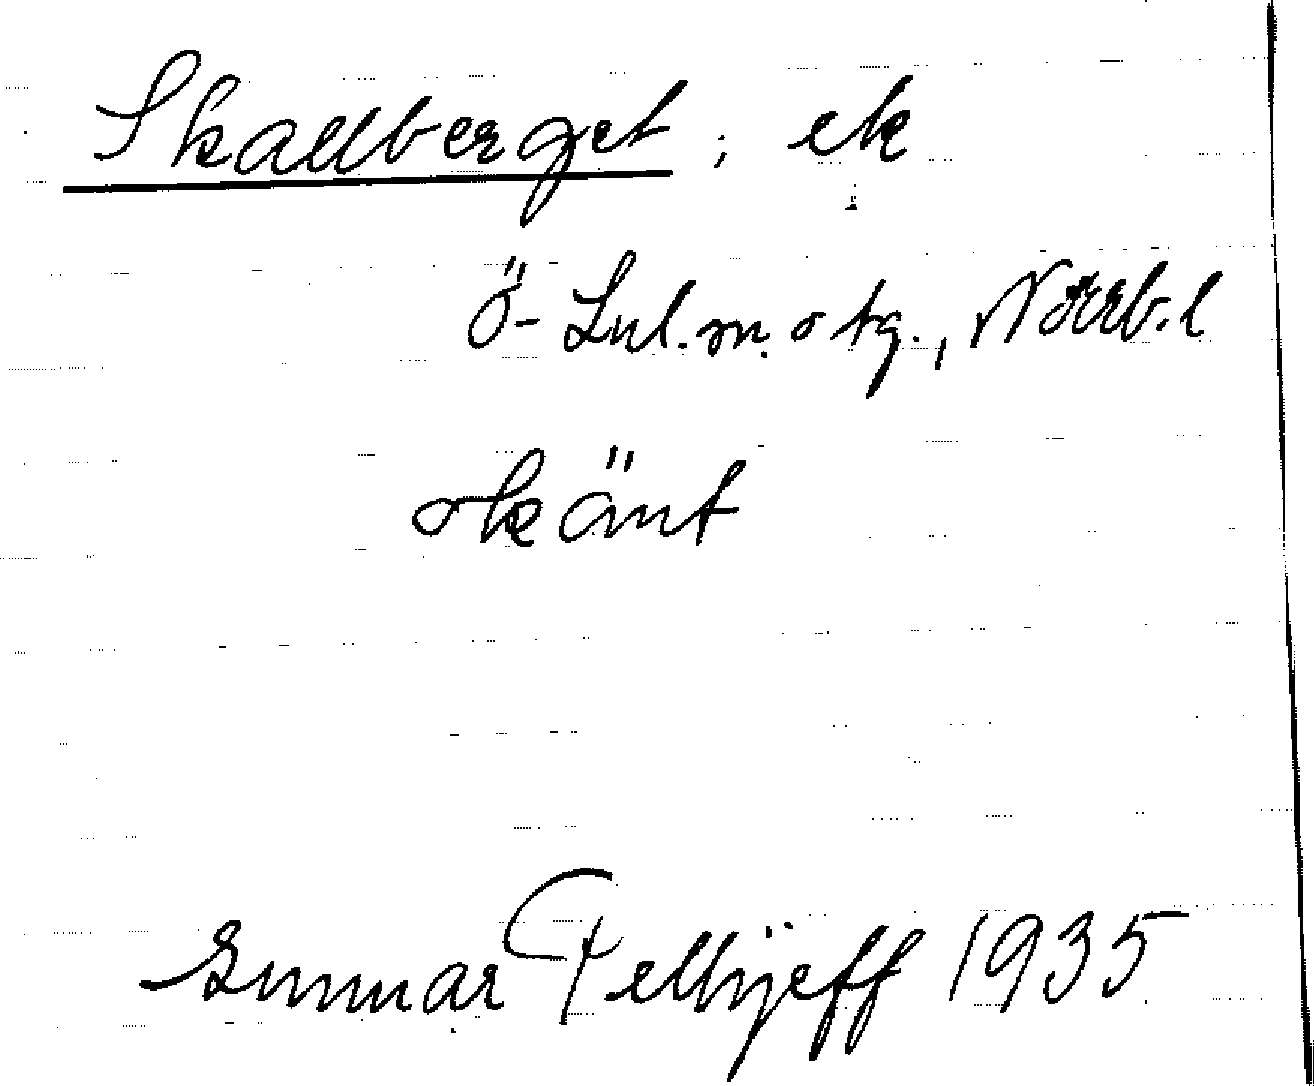 Skallberget, ek
Ö-Lul.m. o tg., Norrb.l
okänt
Gunnar Pellijeff 1935